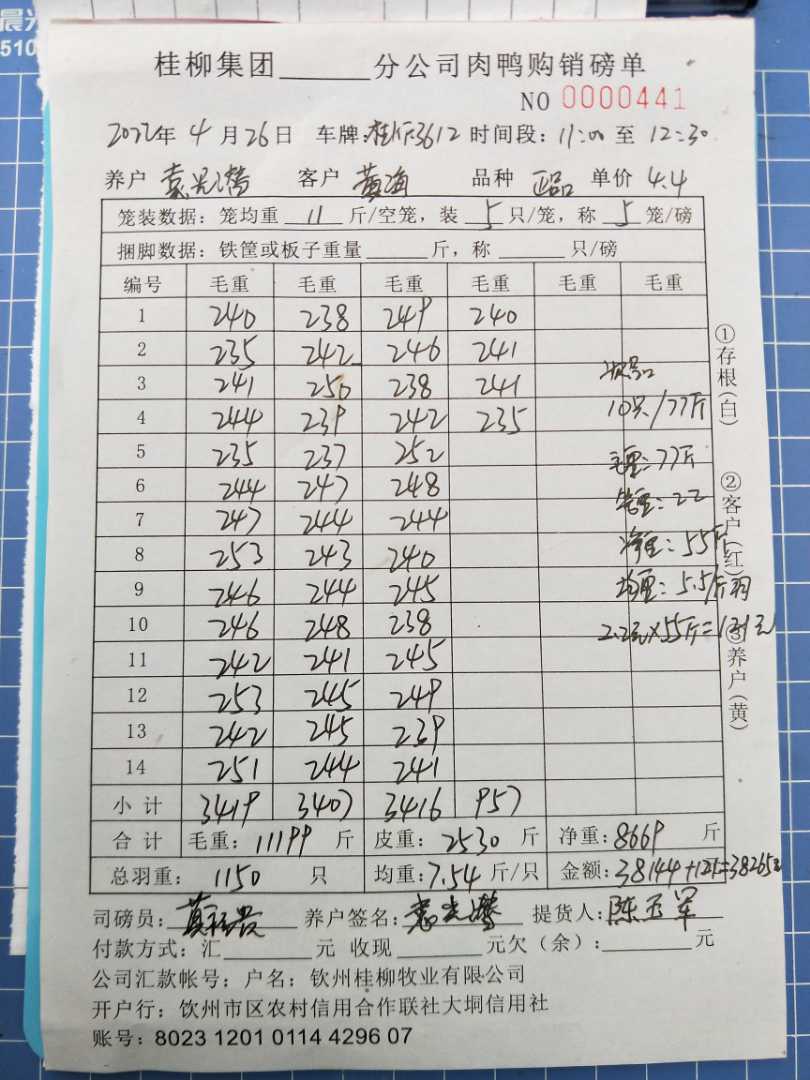 晨光
510
桂柳集团______分公司肉鸭购销磅单
NO 0000441
2022年 4月26日 车牌:桂斤3612 时间段:11:00 至 12:30
养户 袁光腾 客户 黄海 品种 正品 单价 4.4
笼装数据:笼均重 11 斤/空笼,装 5 只/笼,称 5 笼/磅
捆脚数据:铁筐或板子重量______斤,称______只/磅
编号 毛重 毛重 毛重 毛重 毛重 毛重
1 240 238 249 240
2 235 242 246 241
3 241 250 238 241
4 244 239 242 235
5 235 237 252
6 244 247 248
7 247 244 244
8 253 243 240
9 246 244 245
10 246 248 238
11 242 241 245
12 253 245 249
13 242 245 239
14 251 244 241
小计 3419 3407 3416 957
次品
10只/77斤
毛重:77斤
笼重:22
净重:55斤
均重:5.5/斤羽
2.2元×55斤=121元
合计 毛重:11199 斤 皮重:2530 斤 净重:8669 斤
总羽重: 1150 只 均重:7.54 斤/只 金额:38144+121=38265元
司磅员: 养户签名:袁光腾 提货人:陈玉军
付款方式:汇______元 收现______元欠(余):______元
公司汇款帐号:户名:钦州桂柳牧业有限公司
开户行:饮州市区农村信用合作联社大垌信用社
账号:8023 1201 0114 4296 07
①存根(白)
②客户(红)
③养户(黄)